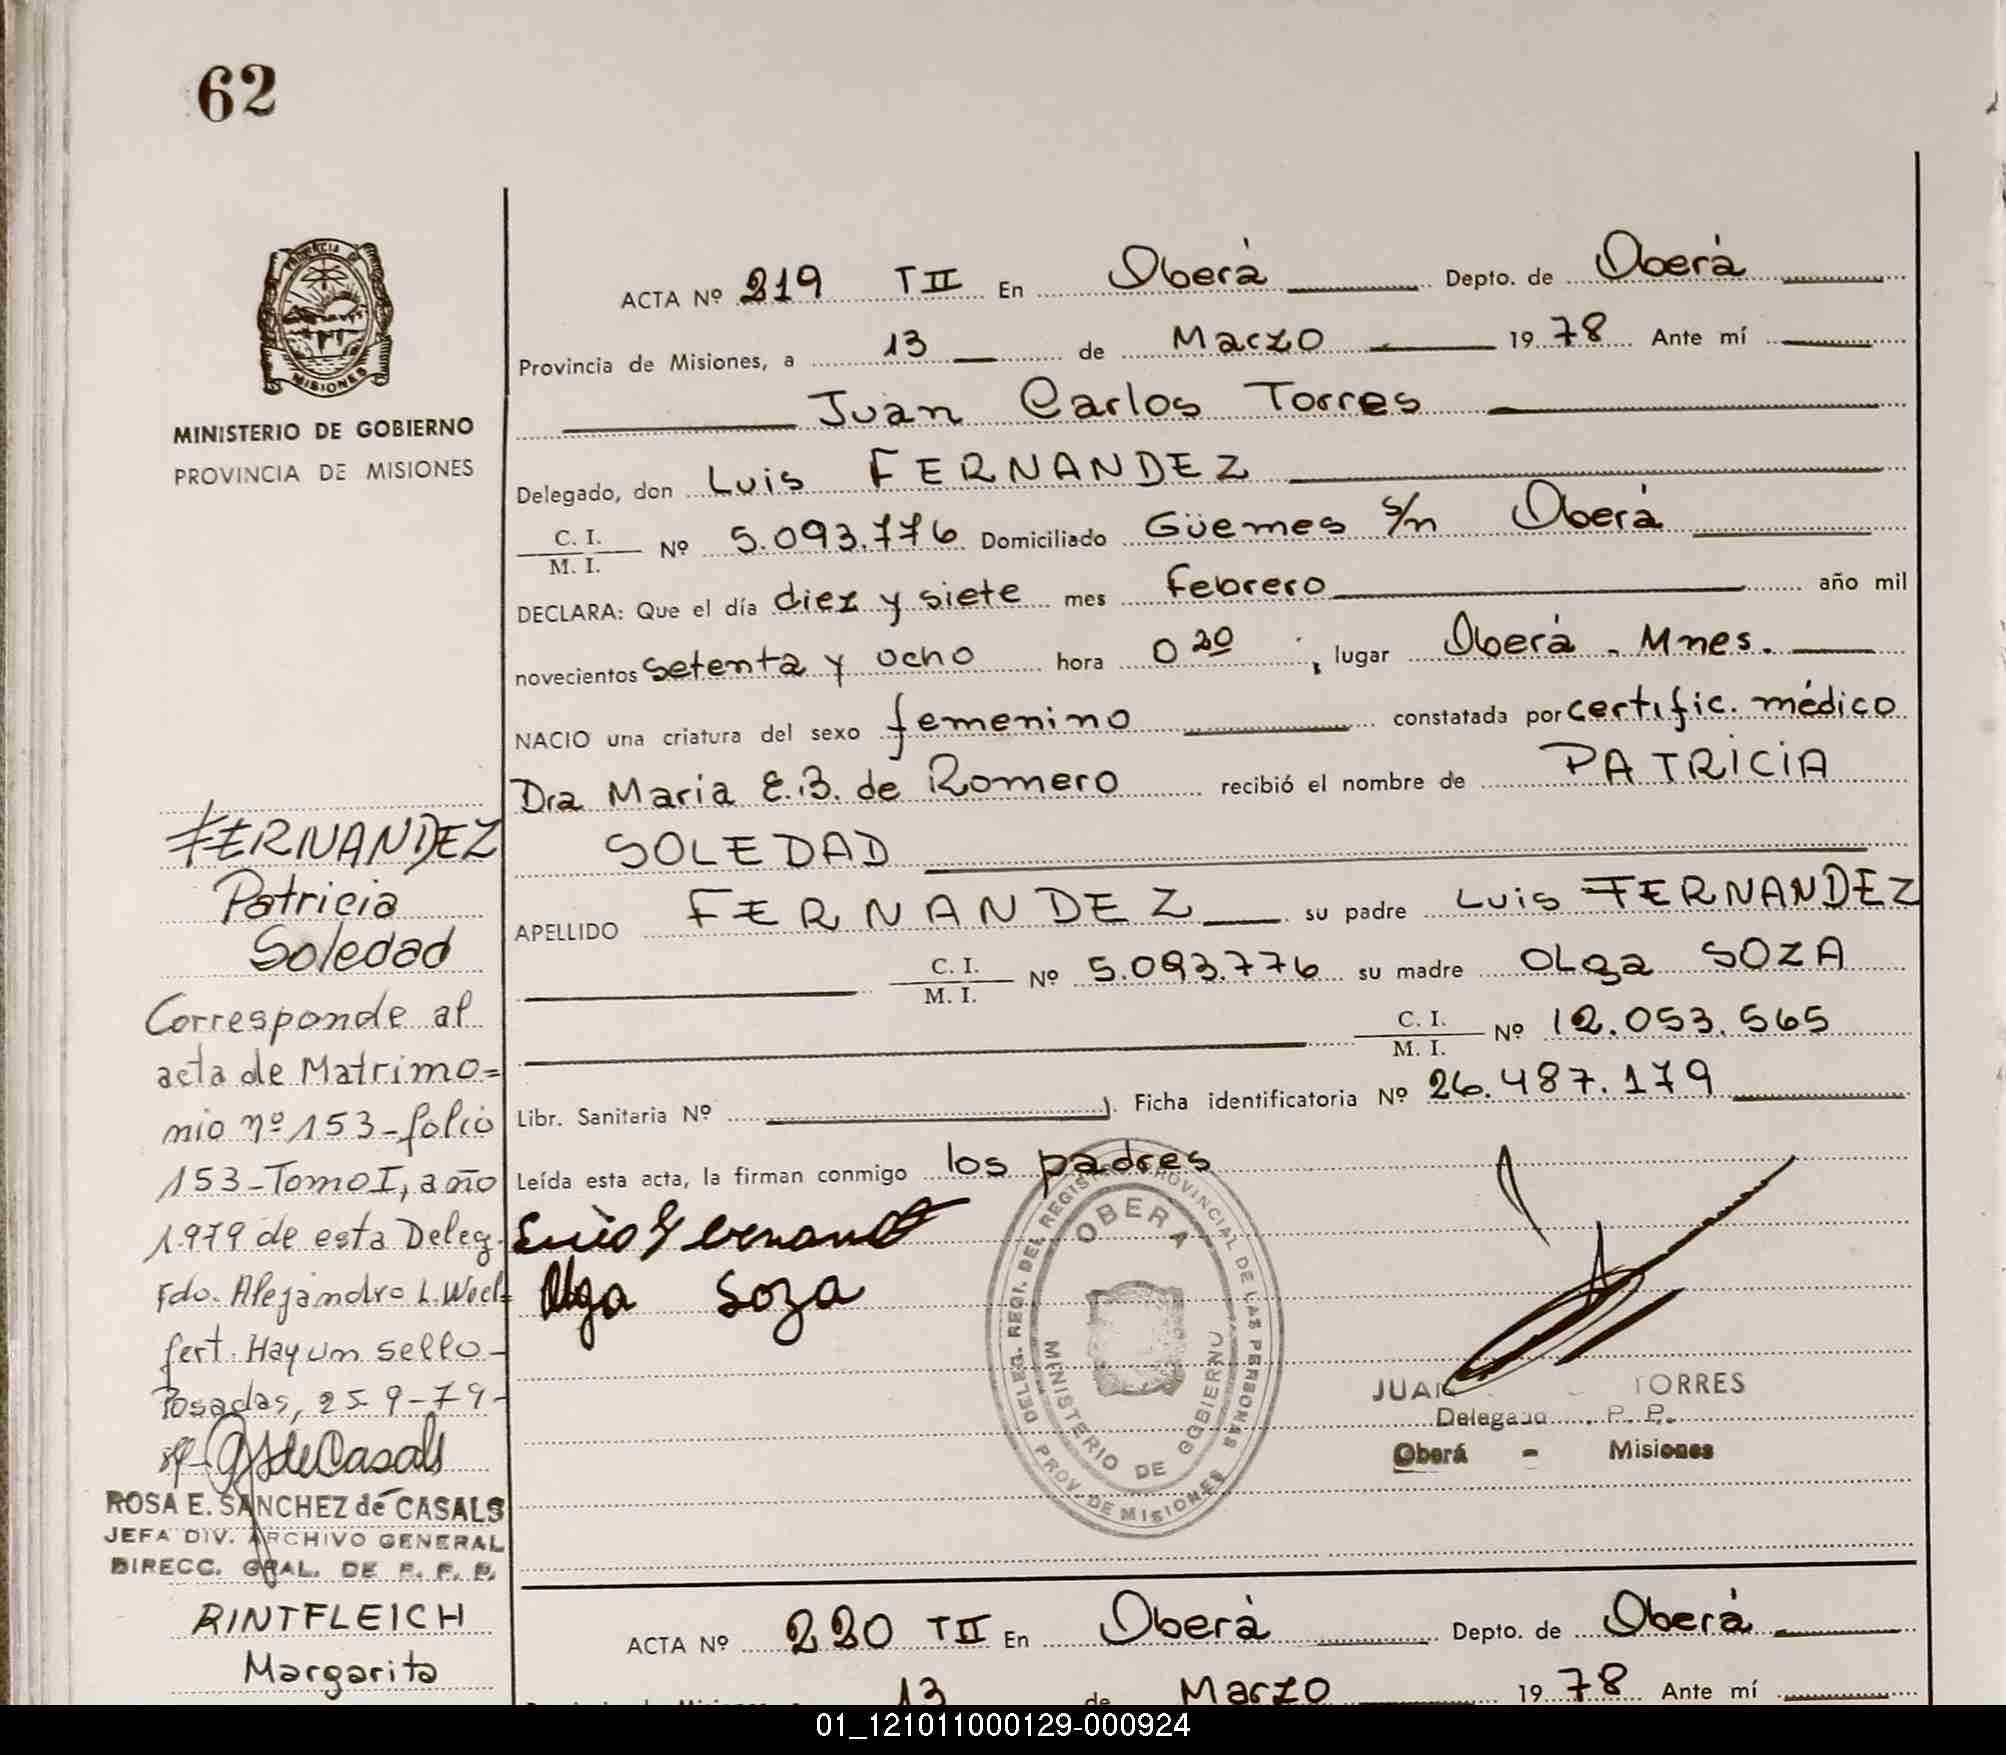 62
PROVINCIA DE
MISIONES
MINISTERIO DE GOBIERNO
PROVINCIA DE MISIONES
ACTA Nº 219 T II En Oberá Depto. de Oberá
Provincia de Misiones, a 13 de Marzo 1978 Ante mí
Juan Carlos Torres
Delegado, don Luis FERNANDEZ
C. I.
M. I. Nº 5.093.776 Domiciliado Güemes s/n Oberá
DECLARA: Que el día diez y siete mes Febrero año mil
novecientos setenta y ocho hora 0 30 ; lugar Oberá - Mnes.
NACIO una criatura del sexo femenino constatada por certific. médico
Dra Maria E.B. de Romero recibió el nombre de PATRICIA
SOLEDAD
APELLIDO FERNANDEZ su padre Luis FERNANDEZ
C. I.
M. I. Nº 5.093.776 su madre OLga SOZA
C. I.
M. I. Nº 12.053.565
Libr. Sanitaria Nº Ficha identificatoria Nº 26.487.179
Leída esta acta, la firman conmigo los padres
Olga Soza
DELEG. REGI. DEL REGISTRO PROVINCIAL DE LAS PERSONAS
OBERA
MENISTERIO DE GOBIERNO
PROV. DE MISIONES
JUAN TORRES
Delegado R. P.
Oberá - Misiones
FERNANDEZ
Patricia
Soledad
Corresponde al
acta de Matrimo=
nio nº 153-folio
153-Tomo I, año
1979 de esta Deleg.
Fdo. Alejandro L. Woel=
fert. Hay un sello-
Posadas, 25-9-79-
de Casals
ROSA E. SANCHEZ de CASALS
JEFA DIV. ARCHIVO GENERAL
DIRECC. GRAL. DE
RINTFLEICH
Margarita
ACTA Nº 220 T II En Oberá Depto. de Oberá
Provincia de Misiones, a 13 de Marzo 1978 Ante mí
01_121011000129-000924